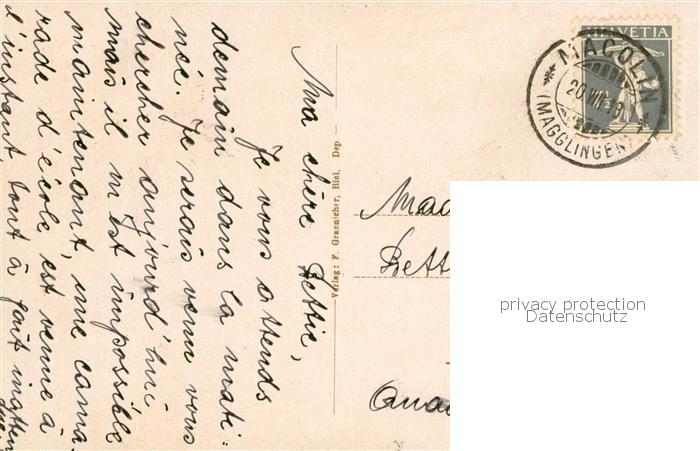 Ma chère Bettie,
Je vous attends
demain dans la mati:
née. Je serais venu vous
chercher aujourd'hui
mais il m'est impossible
maintenant, une cama-
rade d'école est venue à
l'instant, tout à fait inatten
Verlag: F. Graenicher, Biel. Dep —
HELVETIA
* MACOLIN *
20 VII 18
(MAGGLINGEN)
Mad
Bett
privacy protection
Datenschutz